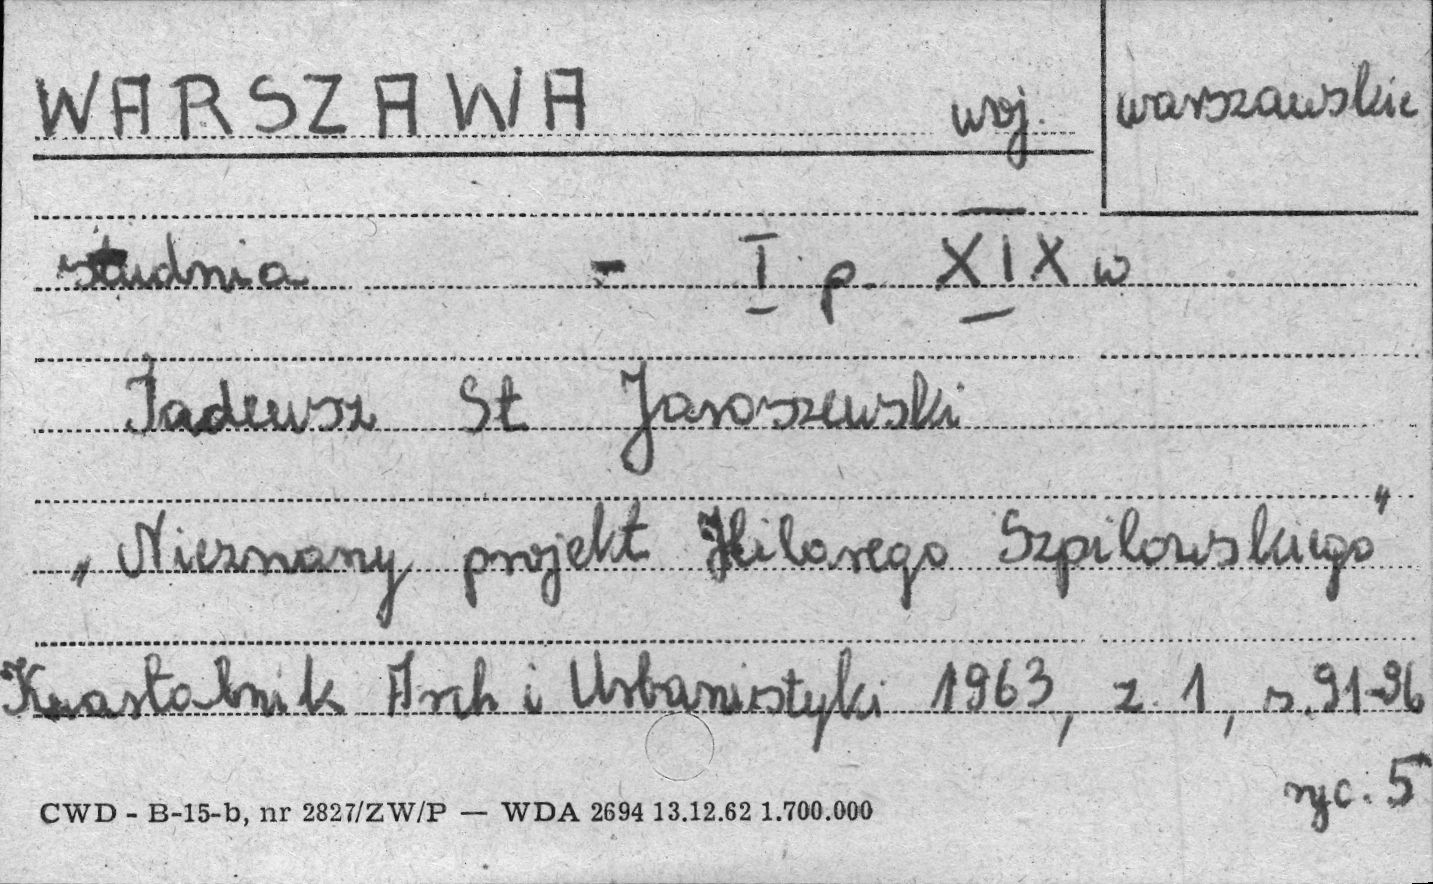 WARSZAWA woj. warszawskie
studnia - I p. XIX w
Tadeusz St Jaroszewski
„Nieznany projekt Hilarego Szpilowskiego"
Kwartalnik Arch i Urbanistyki 1963, z. 1, s. 91-96
ryc. 5
CWD - B-15-b, nr 2827/ZW/P — WDA 2694 13.12.62 1.700.000